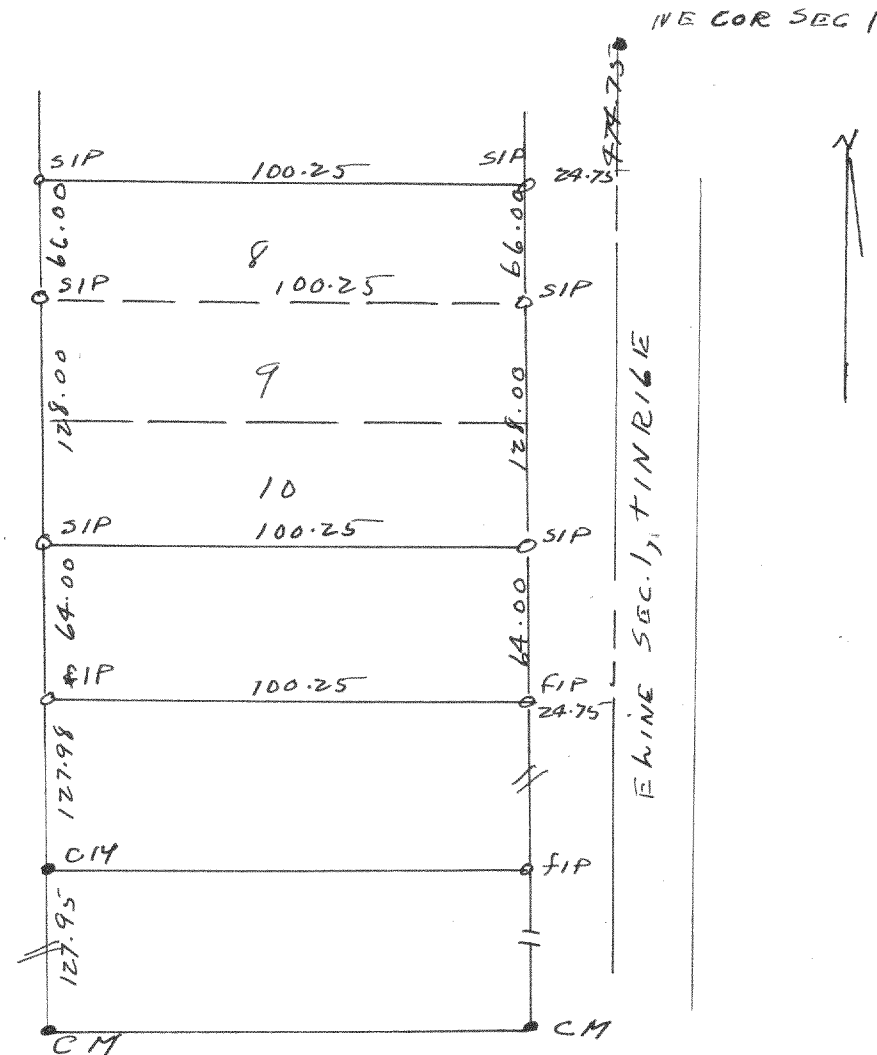 NE COR SEC 1
474.75
SIP 100.25 SIP 24.75
66.00 66.00
8
SIP 100.25 SIP
9
128.00 128.00
10
SIP 100.25 SIP
64.00 64.00
FIP 100.25 FIP
24.75
127.98
CM fIP
127.95
CM CM
E LINE SEC. 1, T1N R16E
N